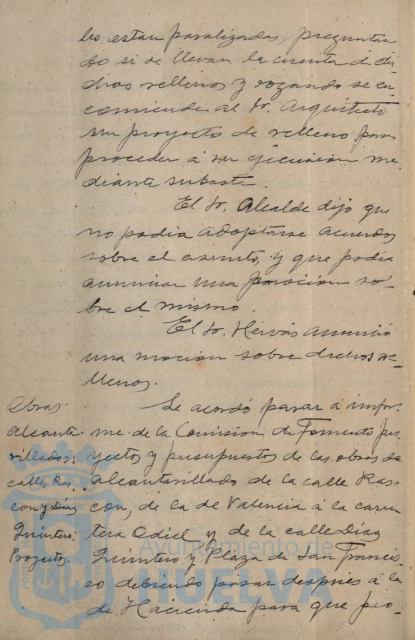 bo estan paralizadas, preguntan
do si se llevan la cuenta de di-
chos rellenos y rogando se en
comiende al Sr. Arquitecto
un proyecto de relleno para
proceder á su ejecucion me
diante subasta.
El Sr. Alcalde dijo que
no podia adoptarse acuerdos
sobre el asunto, y que podia
anunciar una mocion so-
bre el mismo.
El Sr. Hervás anunció
una mocion sobre dichos re-
llenos.
Obras.
Alcanta-
rillados:
calles Ras-
con y Diaz
Quintero:
Proyecto.
Se acordó pasar á infor-
me de la Comision de Fomento pro
yectos y presupuestos de las obras de
alcantarillado de la calle Ras-
con, de la de Valencia á la carre
tera Odiel, y de la calle Diaz
Quintero y Plaza de San Francis-
co debiendo pasar despues á la
de Hacienda para que pro-
Ayuntamiento de
HUELVA